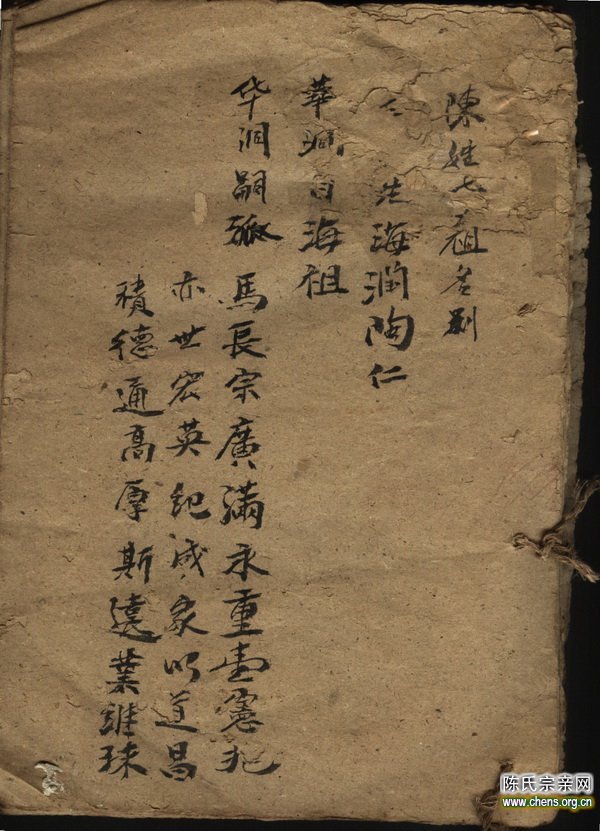 陳姓七祖名别
公 法海潤陶仁
華 海祖
华润嗣孤 馬長宗廣滿永重 憲
亦世宏英紀成家以道昌
積德通高厚斯遠業維
陈氏宗亲网
www.chens.org.cn